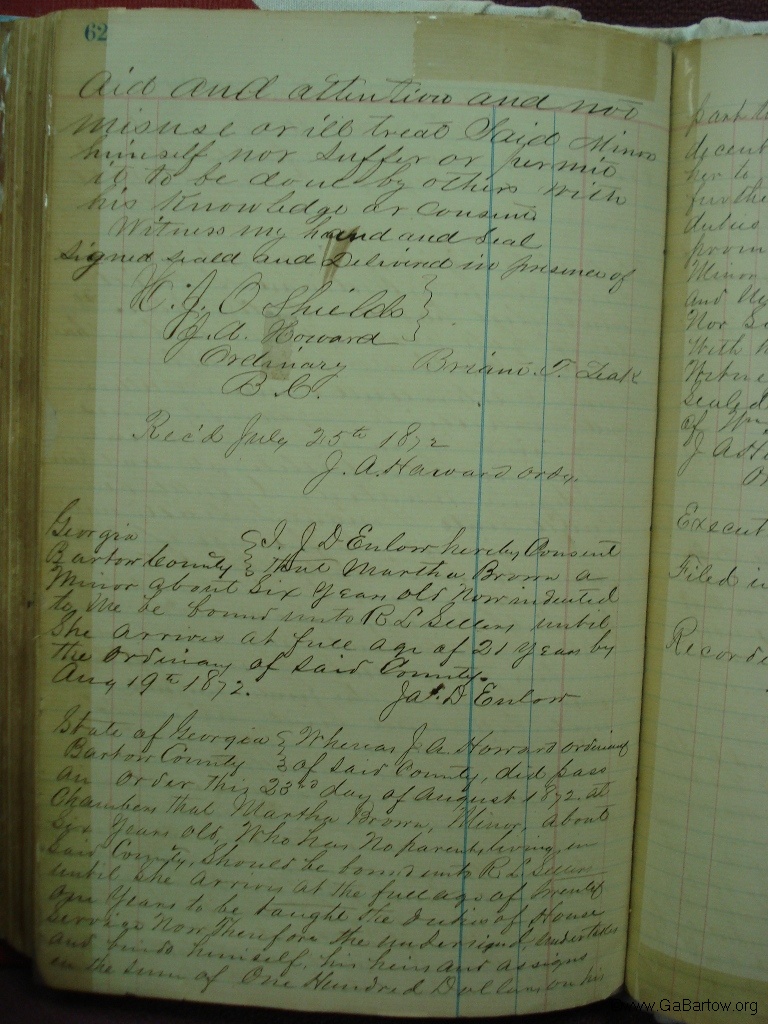 62
aid and attention and not
misuse or ill treat Said Minor
himself nor suffer or permit
it to be done by others with
his Knowledge or consent
Witness my hand and Seal
signed seald and Delivered in presence of
H. J. O Shields
J. A. Howard
Ordinary Briant T. Leak
B. C.
Rec'd July 25th 1872
J. A. Howard ordy.
Georgia I. J D Enlow hereby Consent
Bartow County that Martha Brown a
Minor about Six Years old Now indented
to Me be bound unto R L Sellers until
She arrives at full age of 21 Years by
the ordinary of Said County.
Aug 19th 1872. Jas. D Enlow
State of Georgia Whereas J. A. Howard ordinary
Bartow County of said County, did pass
an order this 23rd day of August 1872. at
Chambers that Martha Brown, Minor, about
Six Years old, Who has No parents living, in
said County, should be bound unto R L Sellers
until she arrives at the full age of twenty
one Years to be taught the duties of House
Service Now Therefore the undersigned, undertakes
and binds himself, his heirs and assigns
in the sum of One Hundred Dollars on his
part t
decent
her to
furthe
duties
prom
Minor
and
Nor Su
With h
Witne
Seale d
of
J A H
Or
Execut
Filed i
Recorde
www.GaBartow.org